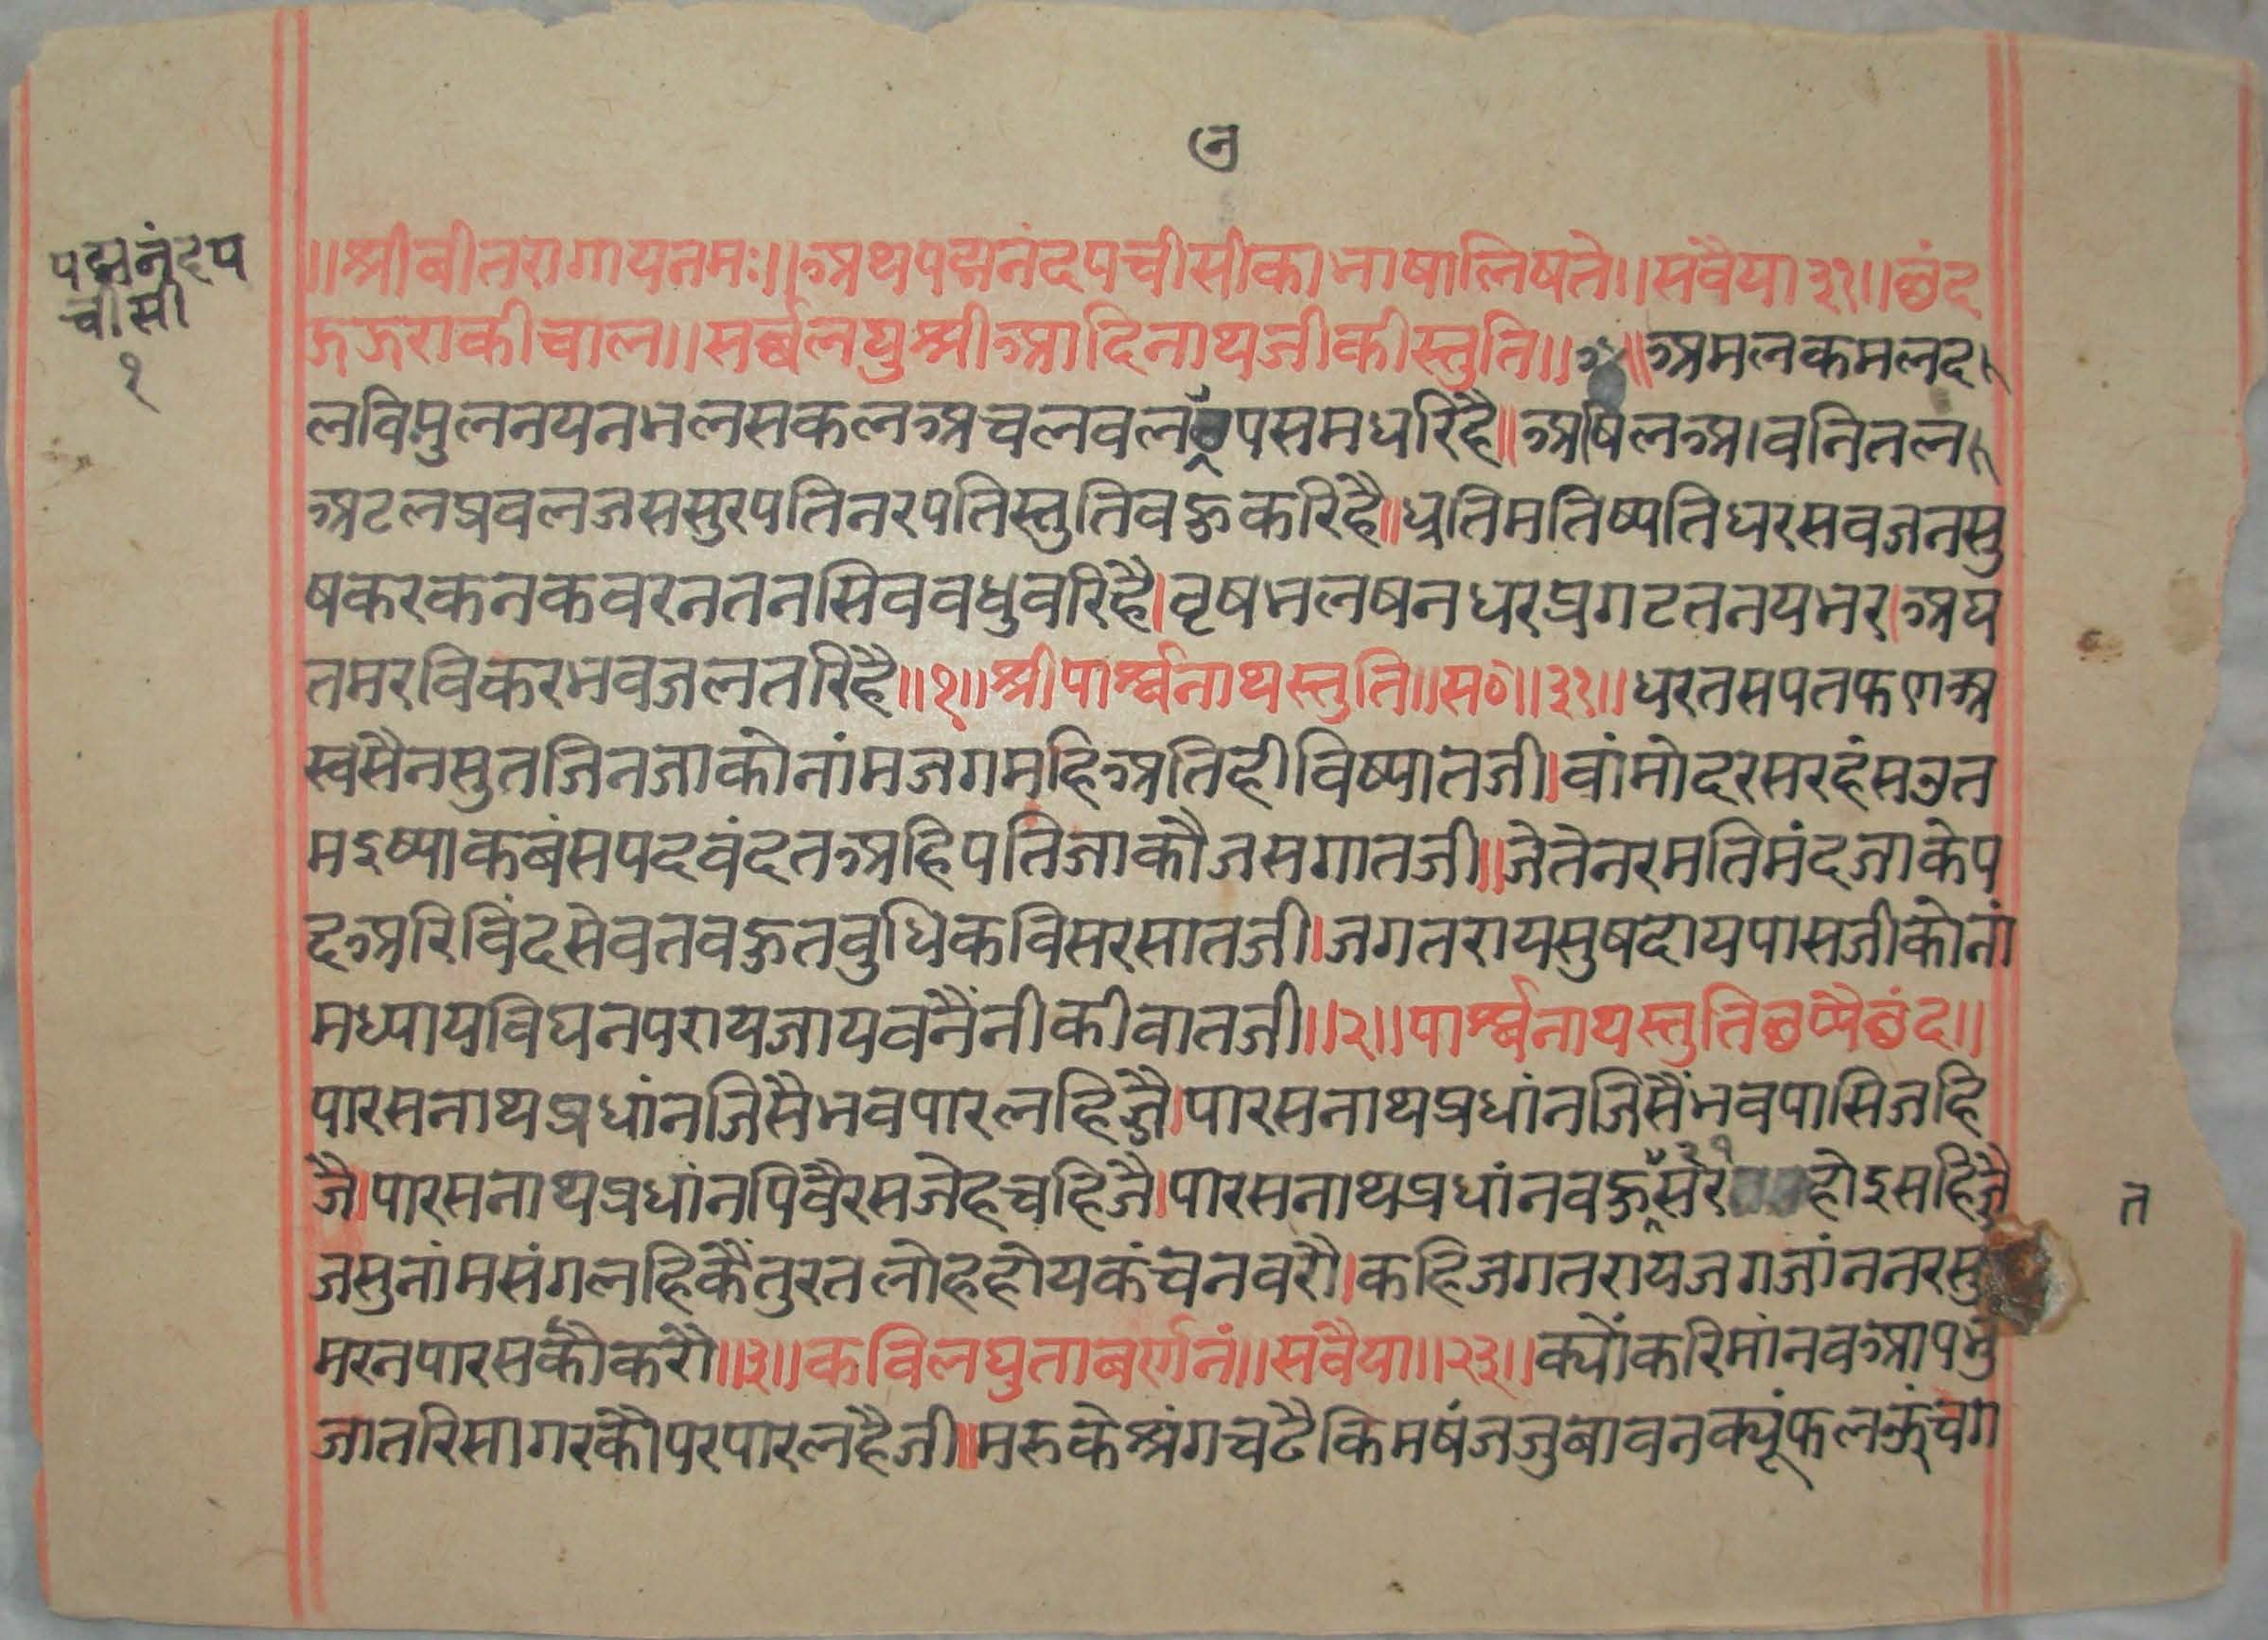 पद्मनंदप
चीसी
१
॥श्रीवीतरागायनमः॥अथपद्मनंदपचीसीकाभाषालिषते॥सवैया३१॥छंद
जजराकीचाल॥सर्बलघुश्रीआदिनाथजीकीस्तुति॥अमलकमलद
लविपुलनयनभलसकलअचलवलपसमधरिहै॥अषिलअवनितल
अटलप्रवलजससुरपतिनरपतिस्तुतिवहुकरिहै॥ध्रतिमतिष्यतिधरसवजनसु
षकरकनकवरनतनसिववधुवरिहै।वृषभलषनधरप्रगटतनयभर।अघ
तमरविकरभवजलतरिहै॥१॥श्रीपार्श्वनाथस्तुति॥स०॥३१॥धरतसपतफणअ
स्वसैनसुतजिनजाकोनांमजगमहिअतिहीविष्यातजी।वांमोदरसरहंसउत
मइष्याकबंसपदवंदतअहिपतिजाकौजसगातजी॥जेतेनरमतिमंदजाकेप
दअरिविंदसेवतवहुतवुधिकविसरसातजी।जगतरायसुषदायपासजीकोनां
मध्यायविघनपरायजायवनैंनीकीवातजी॥२॥पार्श्वनाथस्तुतिछप्पैछंद॥
पारसनाथप्रधांनजिसैभवपारलहिजै।पारसनाथप्रधांनजिसैंभवपासिजहि
जै।पारसनाथप्रधांनपिवैरसजेहचहिजै।पारसनाथप्रधांनवहुसैर होइसहिजै
त
जसुनांमसंगलहिकैंतुरतलोहहोयकंचनवरौ।कहिजगतरायजगजांननरसु
मरनपारसकौकरौ॥३॥कविलघुताबर्णनं॥सवैया॥२३॥क्योंकरिमांनवआपभु
जातरिसागरकौपरपारलहैजी॥मरुकेश्रंगचटैकिमषंजजुबावनक्यूंफलऊंचग